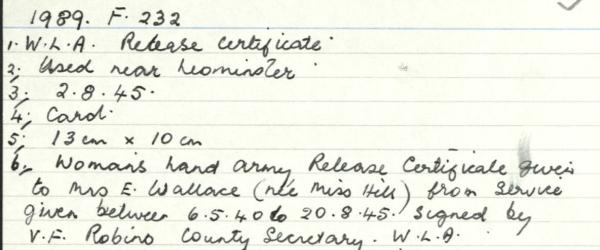 1989. F. 232
1. W.L.A. Release Certificate
2. Used near Leominster
3. 2.8.45.
4. Card.
5. 13cm x 10cm
6. Womans Land Army Release Certificate given
to Mrs E. Wallace (née Miss Hill) from Service
given between 6.5.40 to 20.8.45. Signed by
V.F. Robins County Secretary. W.L.A.